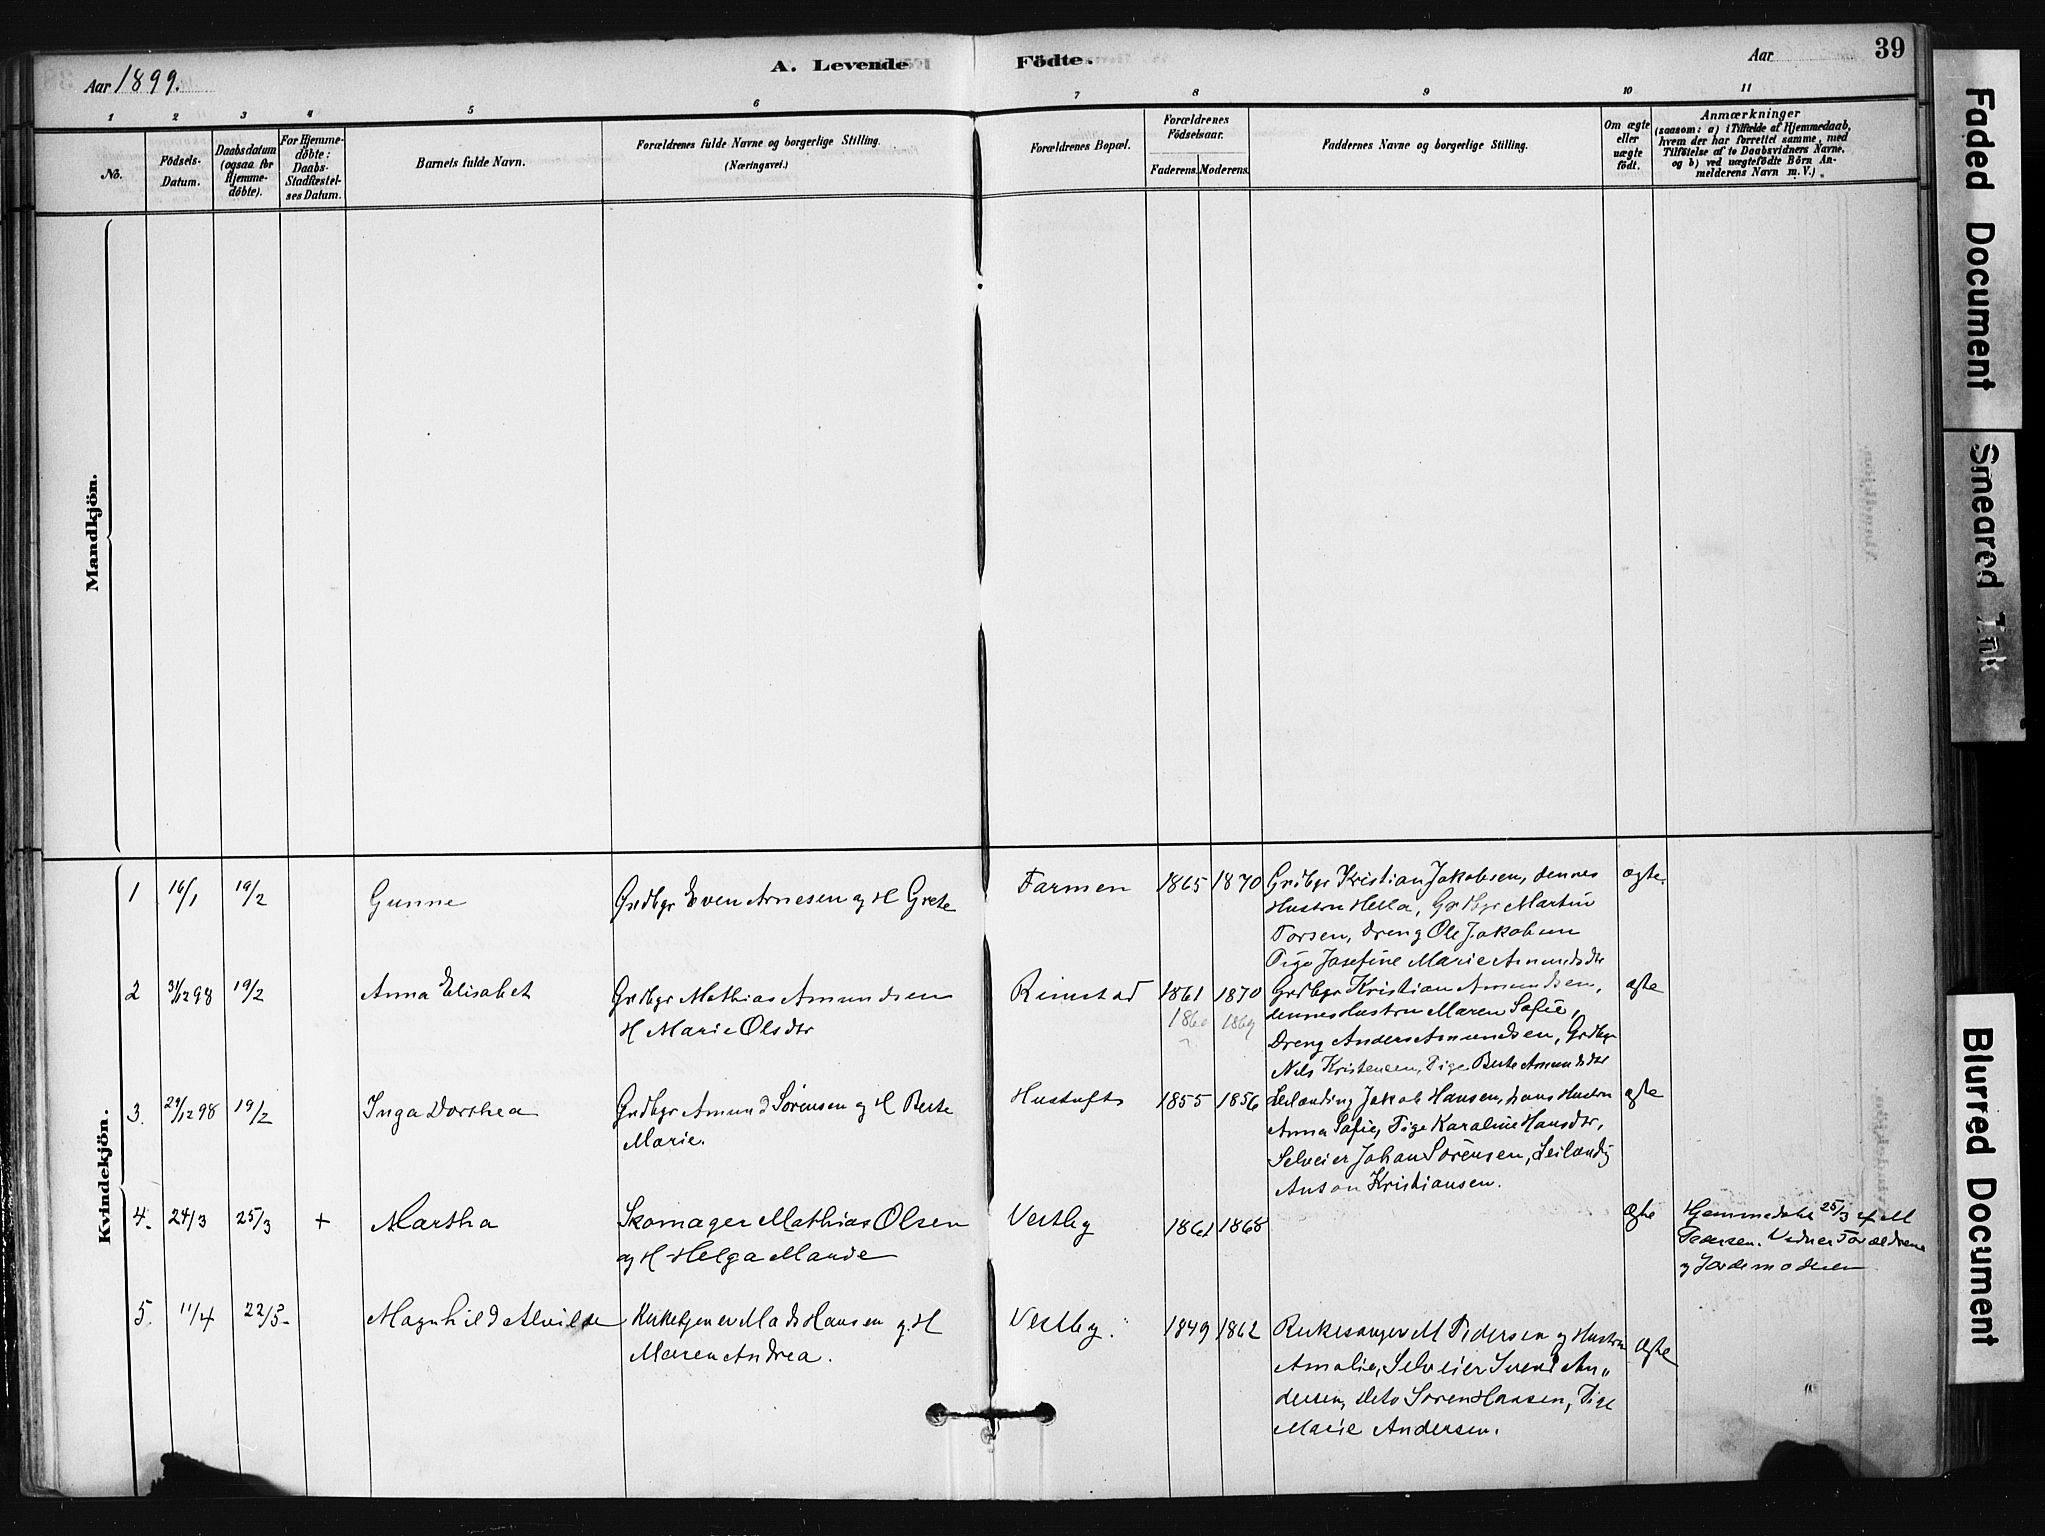 Aar 1899.
A. Levende Födte.
Aar
39
1 2 3 4 5 6 7 8 9 10 11
No.
Födsels-
Datum.
Daabsdatum
(ogsaa for
Hjemme-
döbte).
For Hjemme-
döbte:
Daabs-
Stadfæstel-
ses Datum.
Barnets fulde Navn.
Forældrenes fulde Navne og borgerlige Stilling.
(Næringsvei.)
Forældrenes Bopæl.
Forældrenes
Födselsaar.
Faderens. Moderens.
Faddernes Navne og borgerlige Stilling.
Om ægte
eller
uægte
födt.
Anmærkninger
(saasom: a) i Tilfælde af Hjemmedaab,
hvem der har forrettet samme, med
Tilföielse af to Daabsvidners Navne,
og b) ved uægtefödte Börn An-
melderens Navn m. V.)
Mandkjön.
Kvindekjön.
1 16/1 19/2 Gunne
Grdbgr Even Arnesen og H Grete
Farmen 1865 1870
Grdbgr Kristian Jakobsen, dennes
Hustru Hella, Grdbgr Martin
Torsen, Dreng Ole Jakobsen
Pige Josefine Marie Amundsdtr
ægte
2 31/12 98 19/2 Anna Elisabet
Grdbgr Mathias Amundsen
H Marie Olsdtr
Rimstad 1861 1870
1860 1869
Grdbgr Kristian Amundsen,
dennes Hustru Maren Sofie,
Dreng Anders Amundsen, Grdbgr
Nils Kristensen, Pige Berte Amundsdtr
ægte
3. 29/12 98 19/2 Inga Dorthea
Grdbgr Amund Sörensen og H Berte
Marie.
Hustuft 1855 1856
Leilænding Jakob Hansen, hans Hustru
Anna Sofie, Pige Karaline Hansdtr,
Selveier Johan Sörensen, Leilændig
Anton Kristiansen.
ægte
4. 24/3 25/3 + Martha
Skomager Mathias Olsen
og H Helga Maude
Vestby 1861 1868
ægte
Hjemmedøbt 25/3 af M
Pedersen. Vidner Forældrene
og Jordemoderen
5. 11/4 22/5 Magnhild Alvilde
Kirketjener Mads Hansen og H
Maren Andrea.
Vestby. 1849 1862
Kirkesanger M Pedersen og Hustru
Amalie, Selveier Svend An„
dersen, dito Sören Hansen, Pige
Marie Andersen.
ægte
Faded Document
Smeared Ink
Blurred Document